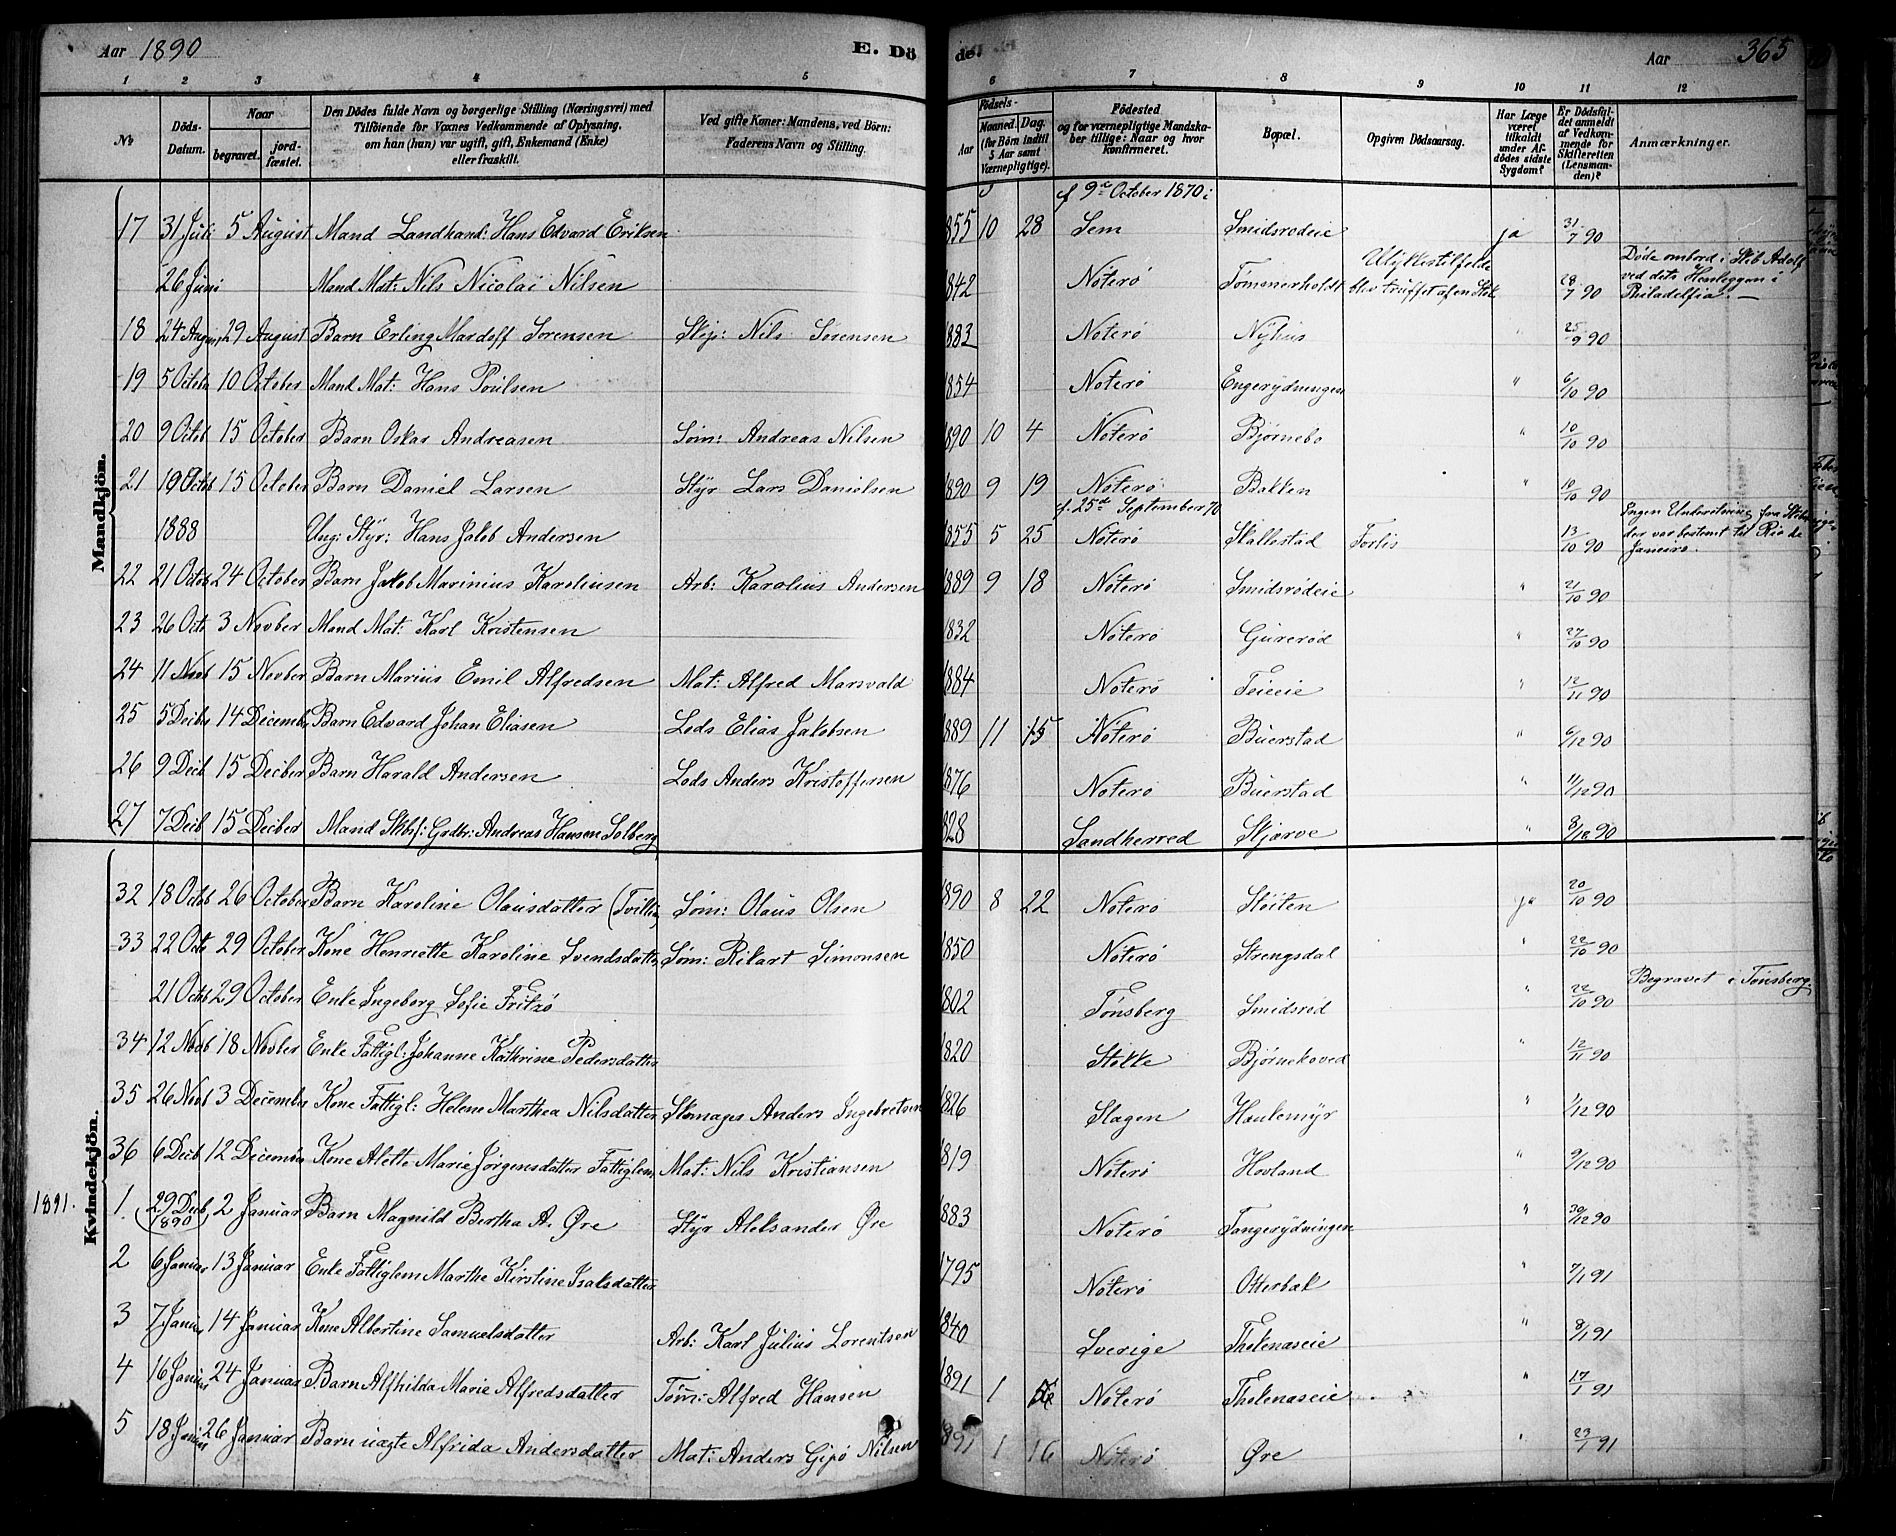 Aar 1890 E. Dö de. Aar 365
1 2 3 4 5 6 7 8 9 10 11 12
№ Döds-Datum. Naar begravet. jordfæstet. Den Dödes fulde Navn og borgerlige Stilling (Næringsvei) med Tilföiende for Voxnes Vedkommende af Oplysning, om han (hun) var ugift, gift, Enkemand (Enke) eller fraskilt. Ved gifte Koner: Mandens, ved Börn: Faderens Navn og Stilling. Födsels- Aar Maaned. Dag. (for Börn indtil 5 Aar samt Værnepligtige). Födested og for værnepligtige Mandskaber tillige: Naar og hvor konfirmeret. Bopæl. Opgiven Dödsaarsag. Har Læge været tilkaldt under Afdödes sidste Sygdom? Er Dödsfaldet anmeldt af Vedkommende for Skifteretten (Lensmanden)? Anmærkninger.
Mandkjön.
f 9de October 1870 i
17 31 Juli 5 August Mand Landhand: Hans Edvard Eriksen 1855 10 28 Sem Smidsrødeie ja 31/7 90
26 Juni Mand Mat: Nils Nicolai Nilsen 1842 Nøterø Tømmerholdt Ulykkestilfelde blev truffet af en Stok 28/7 90 Døde ombord i Skib Adolf ved dets Henliggen i Philadelfia. —
18 24 August 29 August Barn Erling Mardoff Sørensen Skip: Nils Sørensen 1883 Nøterø Nyhus " 25/9 90
19 5 Octob 10 October Mand Mat: Hans Poulsen 1854 Nøterø Engerydningen " 6/10 90
20 9 Octob 15 October Barn Oskar Andreasen Søm: Andreas Nilsen 1890 10 4 Nøterø Bjørnebo " 10/10 90
21 10 Octob 15 October Barn Daniel Larsen Styr Lars Danielsen 1890 9 19 Nøterø Bakken " 10/10 90
f. 25de September 70
1888 Ung: Styr: Hans Jakob Andersen 1855 5 25 Nøterø Skallestad Forlis 13/10 90 Ingen Underretning fra Skibet der var bestemt til Rio de Janeiro.
22 21 Octob 24 October Barn Jakob Marinius Karoliusen Arb: Karolius Andersen 1889 9 18 Nøterø Smidsrødeie " 21/10 90
23 26 Octo 3 Novber Mand Mat: Karl Kristensen 1832 Nøterø Gurerød " 27/10 90
24 11 Novb 15 Novber Barn Marius Emil Alfredsen Mat: Alfred Marsvald 1884 Nøterø Teieeie " 12/11 90
25 5 Decbr 14 Decembr Barn Edvard Johan Eliasen Lods Elias Jakobsen 1889 11 15 Nøterø Buerstad " 6/12 90
26 9 Decb 15 Decber Barn Harald Andersen Lods Anders Kristoffersen 1876 Nøterø Buerstad " 11/12 90
27 7 Decb 15 Decber Mand Skbsf: Grdbr: Andreas Hansen Solberg 1828 Sandherred Skjærve " 8/12 90
Kvindekjön.
32 18 Octob 26 October Barn Karoline Olausdatter (Tvilli Søm: Olaus Olsen 1890 8 22 Nøterø Støiten ja 20/10 90
33 22 Octo 29 October Kone Henriette Karoline Svendsdatter Søm: Rikart Simonsen 1850 Nøterø Strengsdal " 22/10 90
21 Octob 29 October Enke Ingeborg Sofie Fritzø 1802 Tønsberg Smidsrød " 22/10 90 Begravet i Tønsberg.
34 12 Novb 18 Novber Enke Fattigl: Johanne Kathrine Pedersdatter 1820 Stokke Bjørnehoved " 12/11 90
35 26 Novb 3 December Kone Fattigl: Helene Marthea Nilsdatter Skomager Anders Ingebretsen 1826 Slagen Haukemyr " 1/12 90
36 6 Decb 12 December Kone Alette Marie Jørgensdatter Fattiglem Mat: Nils Kristiansen 1819 Nøterø Hovland " 9/12 90
1891. 1 29 Decb (1890) 2 Januar Barn Magnild Bertha A. Øre Styr Aleksander Øre 1883 Nøterø Tangerydningen " 30/12 90
2 6 Januar 13 Januar Enke Fattiglem Marthe Kirstine Isaksdatter 1795 Nøterø Otterbæk " 7/1 91
3 7 Januar 14 Januar Kone Albertine Samuelsdatter Arb: Karl Julius Lorentsen 1840 Sverige Tholenaseie " 8/1 91
4 16 Januar 24 Januar Barn Alfhilda Marie Alfredsdatter Tøm: Alfred Hansen 1891 1 Nøterø Tholenaseie " 17/1 91
5 18 Januar 26 Januar Barn uægte Alfrida Andersdatter Mat: Anders Gipø Nilsen 1891 1 16 Nøterø Øre " 23/1 91